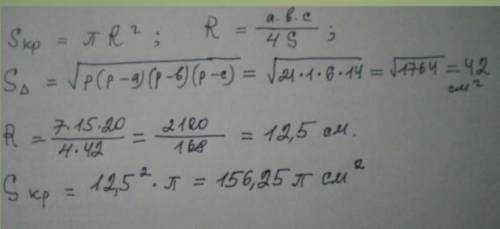 Sкр = πR²; R = a·в·c / 4S;
S△ = √p(p-a)(p-в)(p-c) = √21·1·6·14 = √1764 = 42 см²
R = 7·15·20 / 4·42 = 2100 / 168 = 12,5 см.
Sкр = 12,5²·π = 156,25π см²